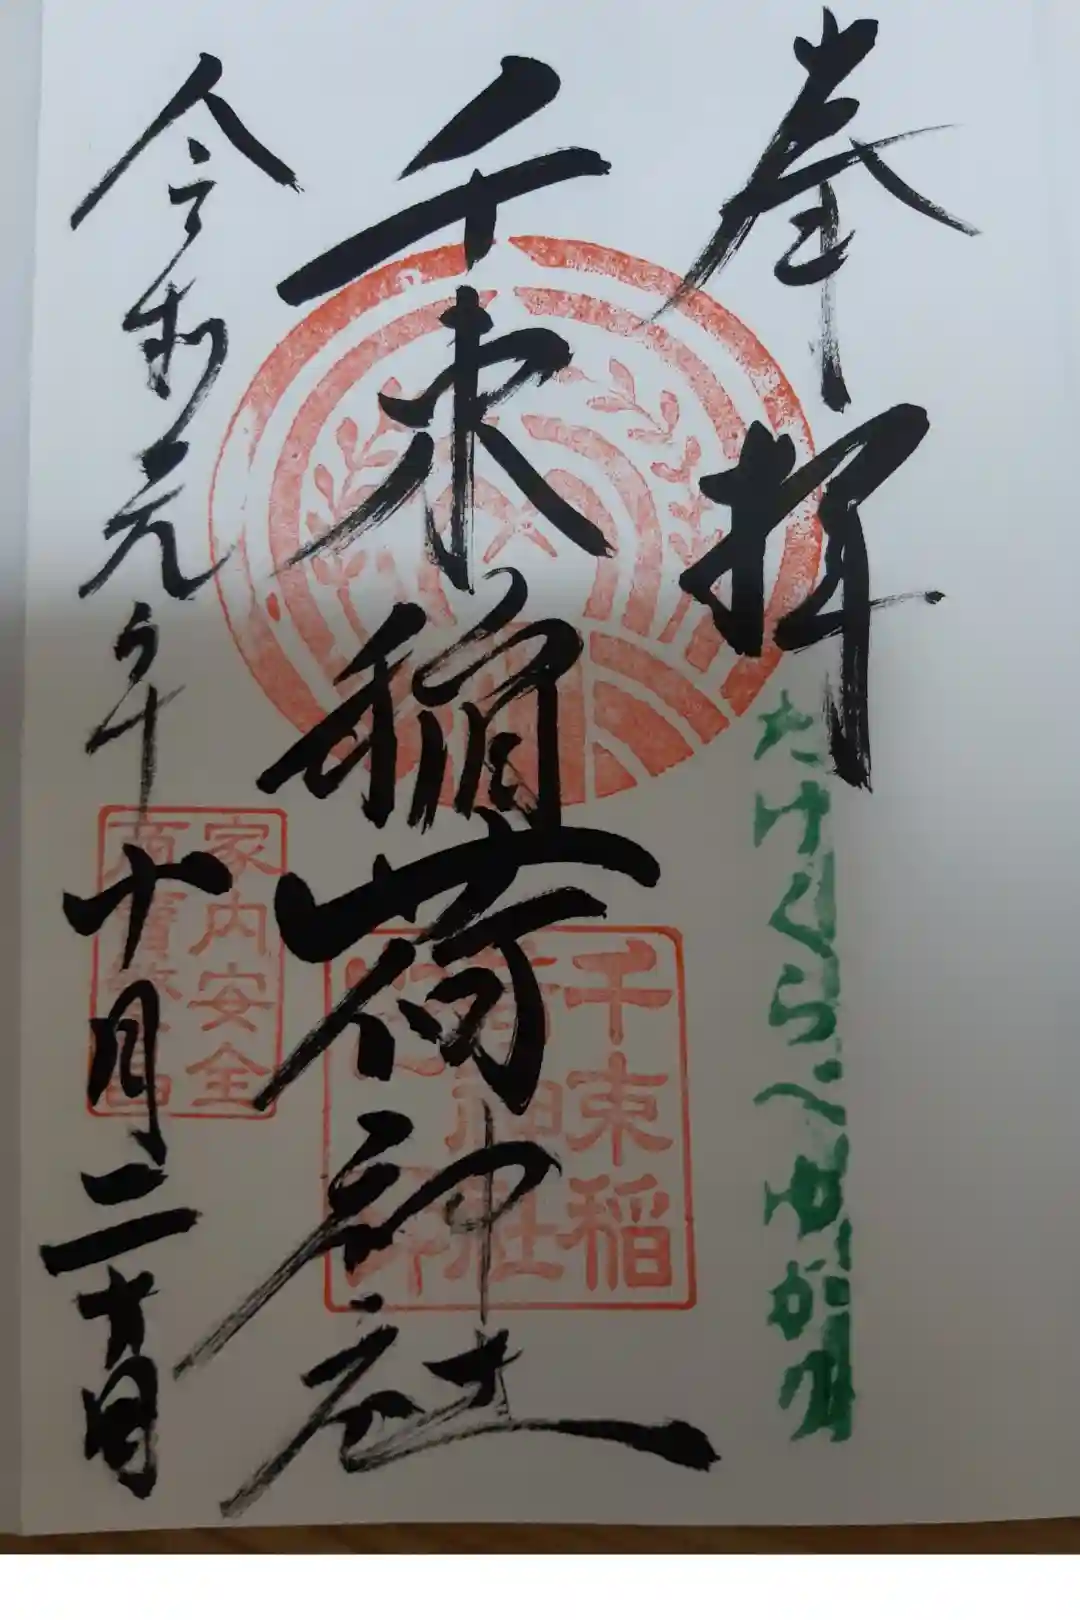 奉拝
たけくらべゆかり
千束稲荷神社
千束稲
荷神社
令和元年十月二十日
家内安全
商賣繁昌